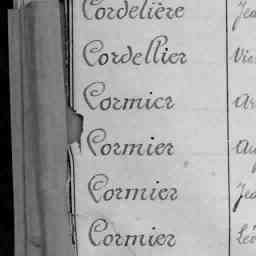 Cordelière Jea
Cordellier Vic
Cormier
Cormier Au
Cormier Jea
Cormier Léo